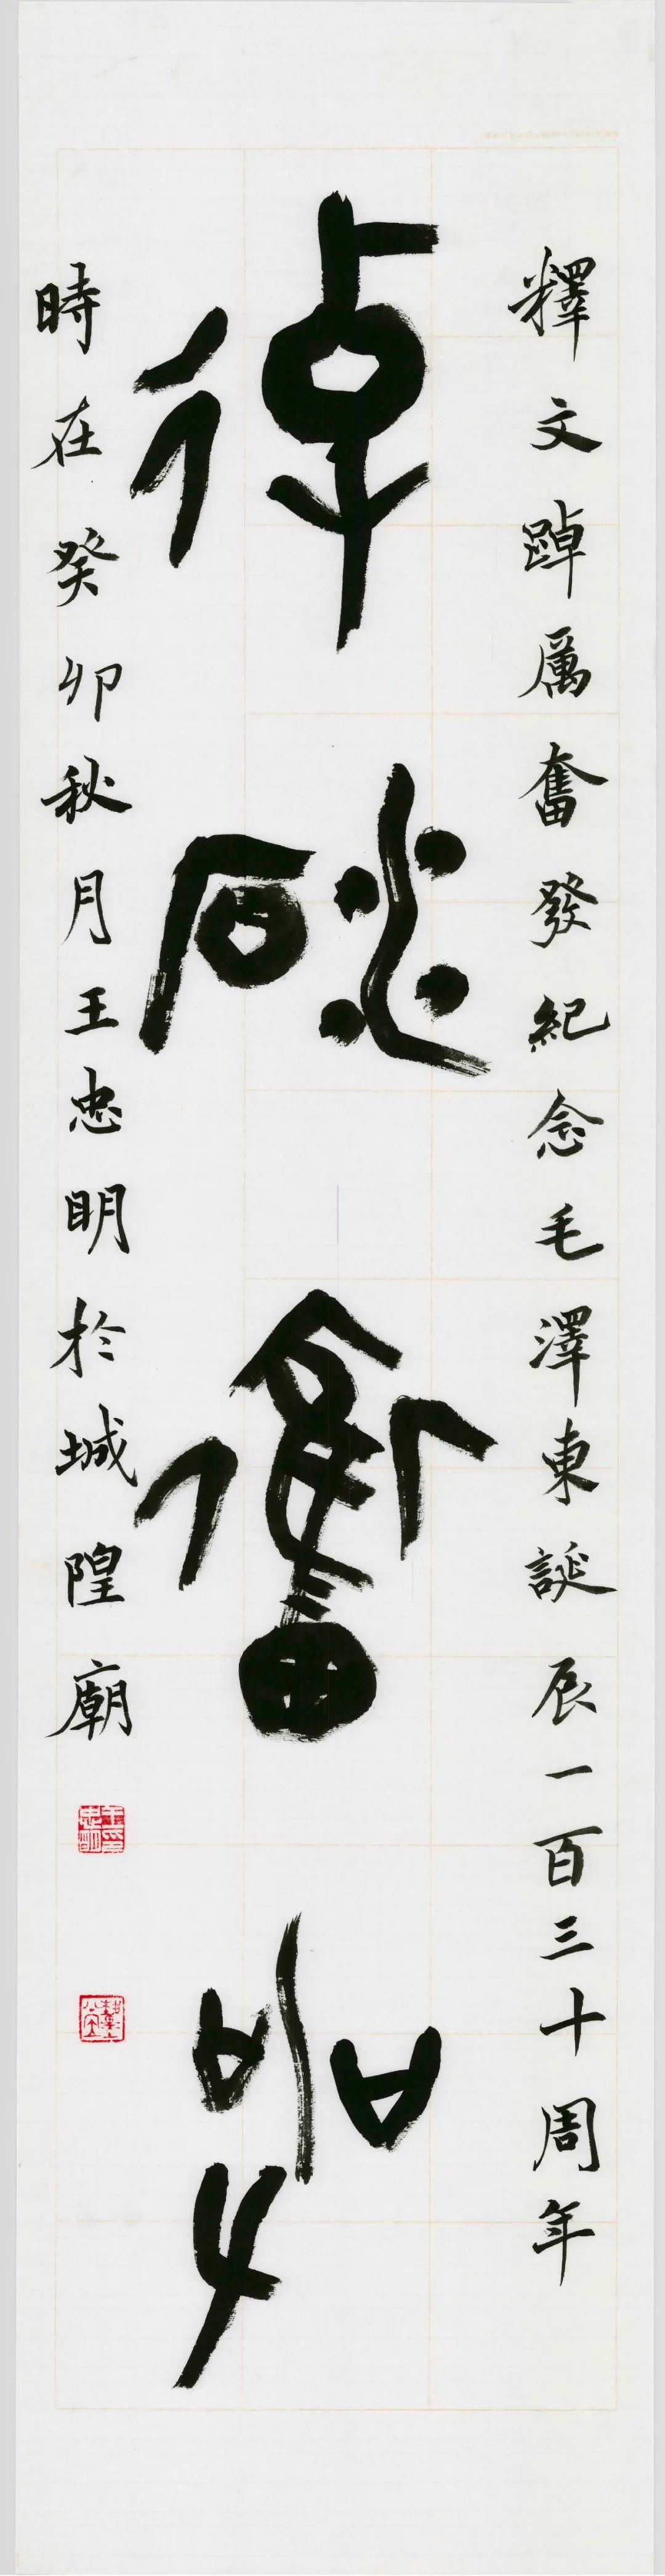 釋文踔厲奮發紀念毛澤東誕辰一百三十周年
踔厲奮發
時在癸卯秋月王忠明於城隍廟